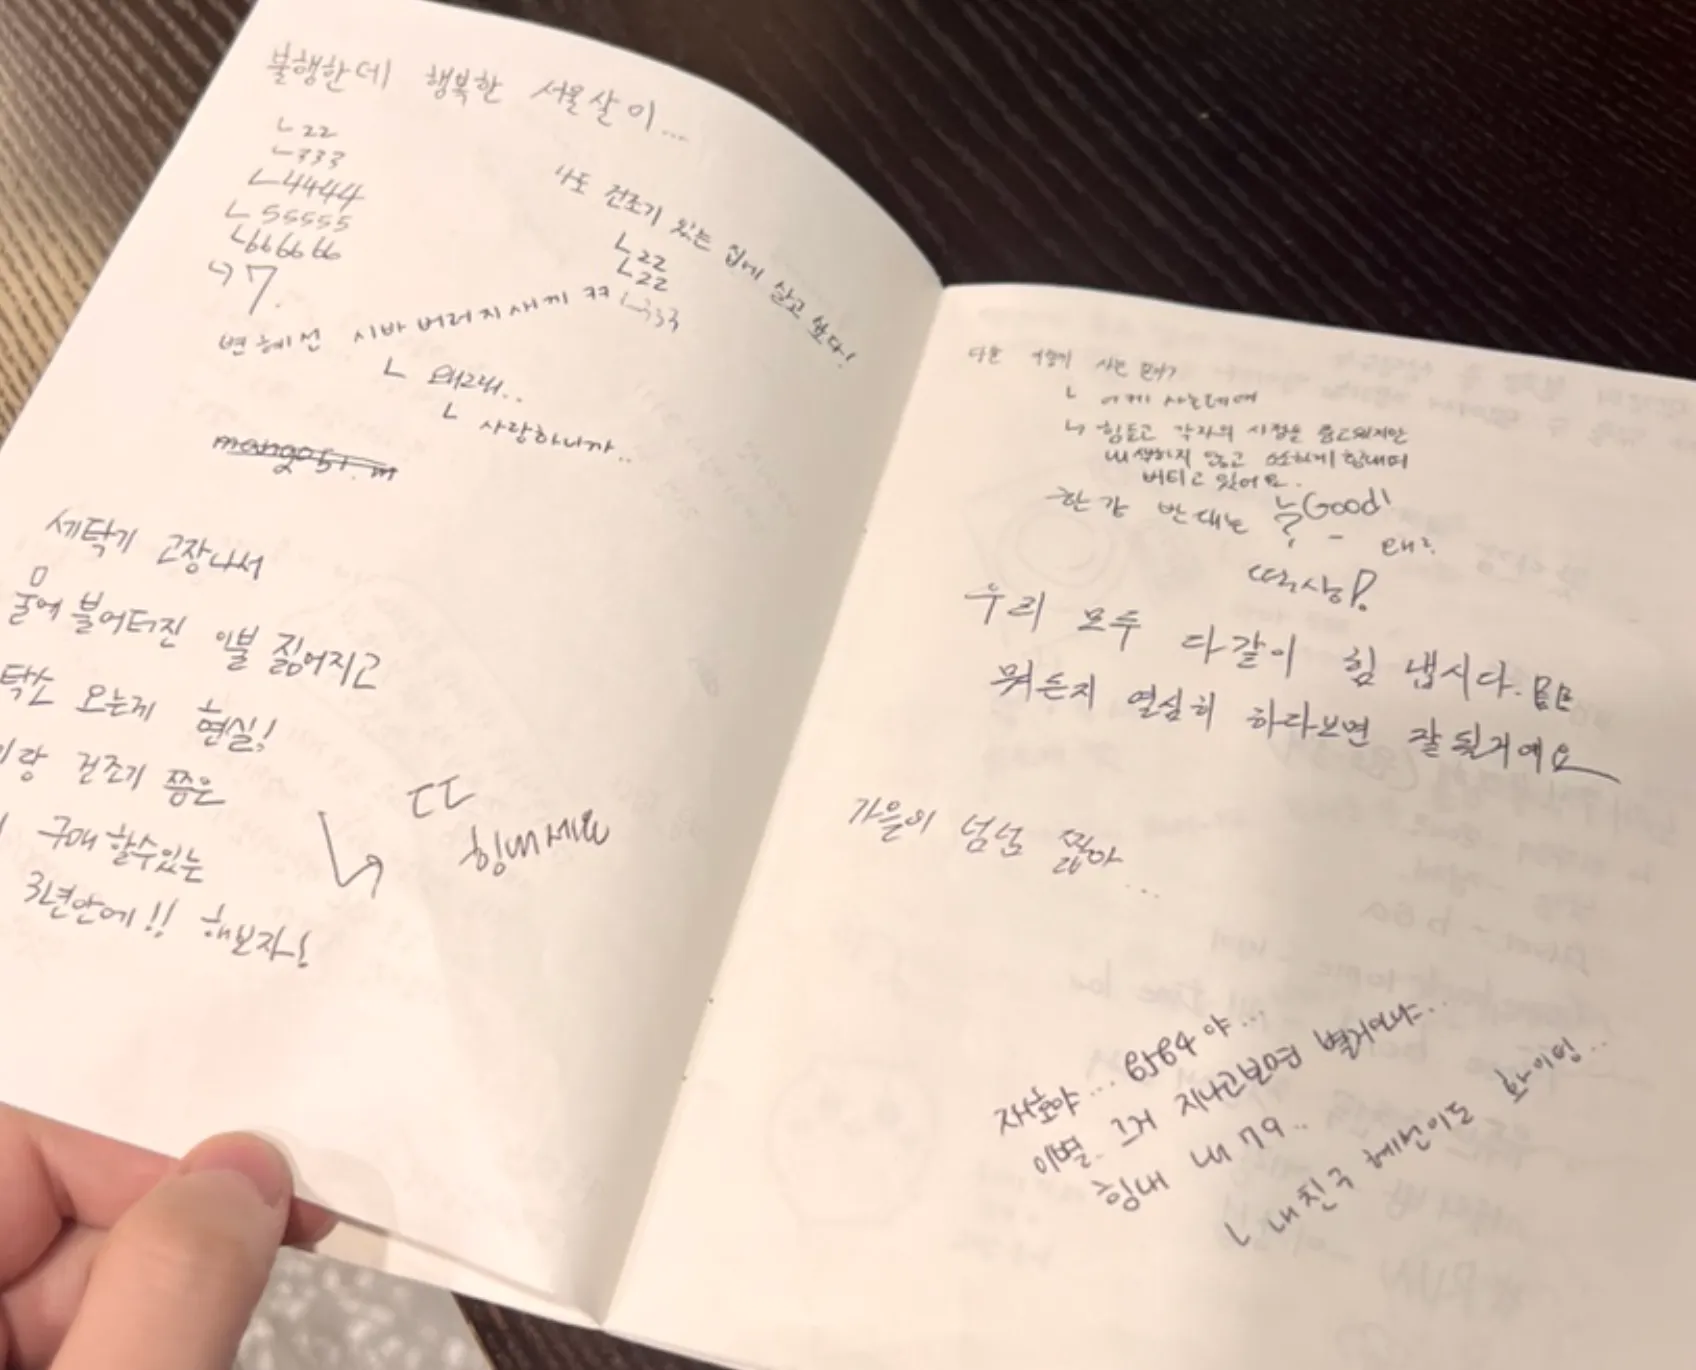 불행한데 행복한 서울살이...
ㄴ22
ㄴ333
ㄴ4444
ㄴ55555
ㄴ666666
↳7.
나도 건조기 있는 집에 살고 싶다!
ㄴ22
ㄴ22
ㄴ333
변혜선 시바 버러지새끼 ㅋㅋ
ㄴ 왜그래..
ㄴ 사랑하니까..
세탁기 고장나서
물에 불어터진 이불 짊어지고
탁소 오는게 현실!
이랑 건조기 쯤은
구매 할수있는
3년안에!! 해보자!
힘내세요
다들 어떻게 사는
ㄴ 이케 사는데여
ㄴ 힘들고 각자의 사정은 있지만
내색하지 않고 소소하게 힘내며
버티고 있어요.
ㄴGood!
한강 반대는 ? - 왜?
떡상!
우리 모두 다같이 힘 냅시다.
뭐든지 열심히 하다보면 잘 될거예요
가을이 넘넘 짧아...
재호야... 괜찮아...
이별.. 그거 지나고보면 별거아냐..
힘내 내 친구..
ㄴ 내친구 혜선이도 화이팅...